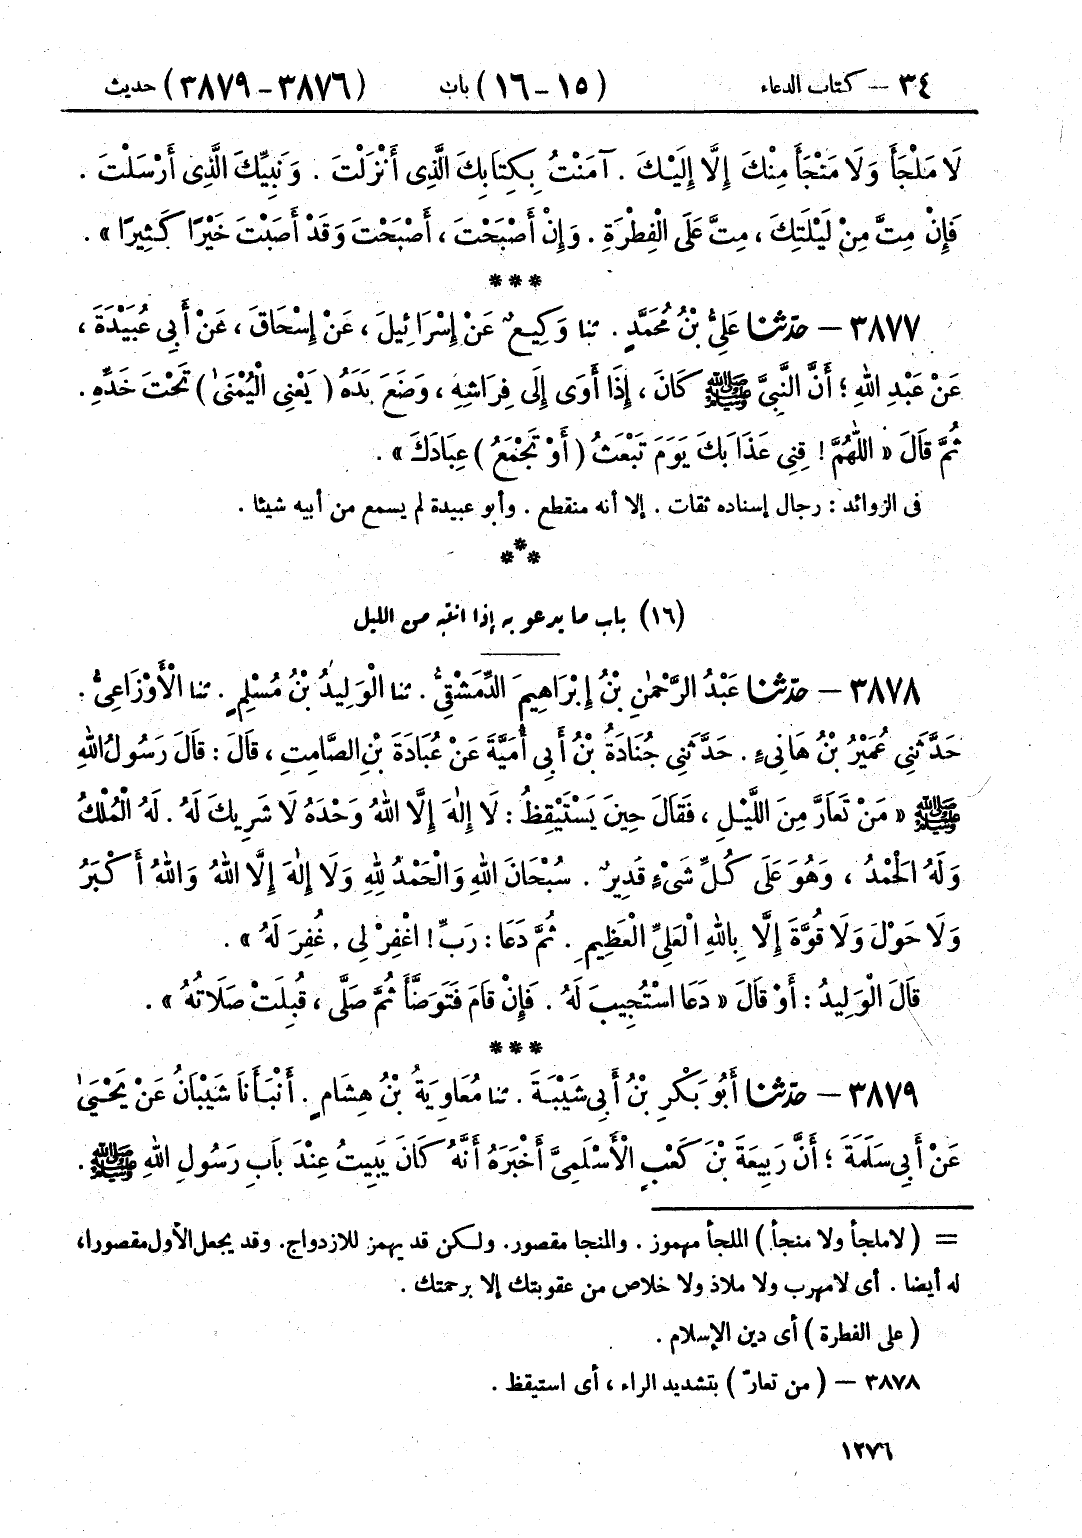 ٣٤ – كتاب الدعاء (١٥ – ١٦) باب (٣٨٧٦ – ٣٨٧٩) حديث
لَا مَلْجَأَ وَلَا مَنْجَأَ مِنْكَ إِلَّا إِلَيْكَ . آمَنْتُ بِكِتَابِكَ الَّذِى أَنْزَلْتَ . وَنَبِيِّكَ الَّذِى أَرْسَلْتَ .
فَإِنْ مِتَّ مِنْ لَيْلَتِكَ ، مِتَّ عَلَى الْفِطْرَةِ . وَإِنْ أَصْبَحْتَ ، أَصْبَحْتَ وَقَدْ أَصَبْتَ خَيْرًا كَثِيرًا » .
***
٣٨٧٧ – حدّثنا عَلِىُّ بْنُ مُحَمَّدٍ . ثنا وَكِيعٌ عَنْ إِسْرَائِيلَ ، عَنْ إِسْحَاقَ ، عَنْ أَبِى عُبَيْدَةَ ،
عَنْ عَبْدِ اللهِ ؛ أَنَّ النَّبِىَّ ﷺ كَانَ ، إِذَا أَوَى إِلَى فِرَاشِهِ ، وَضَعَ يَدَهُ ( يَعْنِى الْيُمْنَىٰ ) تَحْتَ خَدِّهِ .
ثُمَّ قَالَ « اللّٰهُمَّ ! قِنِى عَذَابَكَ يَوْمَ تَبْعَثُ ( أَوْ تَجْمَعُ ) عِبَادَكَ » .
فى الزوائد : رجال إسناده ثقات . إلا أنه منقطع . وأبو عبيدة لم يسمع من أبيه شيئا .
***
(١٦) باب ما يدعو به إذا انتبه من الليل
٣٨٧٨ – حدّثنا عَبْدُ الرَّحْمٰنِ بْنُ إِبْرَاهِيمَ الدِّمَشْقِىُّ . ثنا الْوَلِيدُ بْنُ مُسْلِمٍ . ثنا الْأَوْزَاعِىُّ .
حَدَّثَنِى عُمَيْرُ بْنُ هَانِىءٍ . حَدَّثَنِى جُنَادَةُ بْنُ أَبِى أُمَيَّةَ عَنْ عُبَادَةَ بْنِ الصَّامِتِ ، قَالَ : قَالَ رَسُولُ اللهِ
ﷺ « مَنْ تَعَارَّ مِنَ اللَّيْلِ ، فَقَالَ حِينَ يَسْتَيْقِظُ : لَا إِلٰهَ إِلَّا اللهُ وَحْدَهُ لَا شَرِيكَ لَهُ . لَهُ الْمُلْكُ
وَلَهُ الْحَمْدُ ، وَهُوَ عَلَى كُلِّ شَىْءٍ قَدِيرٌ . سُبْحَانَ اللهِ وَالْحَمْدُ لِلهِ وَلَا إِلٰهَ إِلَّا اللهُ وَاللهُ أَكْبَرُ
وَلَا حَوْلَ وَلَا قُوَّةَ إِلَّا بِاللهِ الْعَلِىِّ الْعَظِيمِ . ثُمَّ دَعَا : رَبِّ ! اغْفِرْ لِى . غُفِرَ لَهُ » .
قَالَ الْوَلِيدُ : أَوْ قَالَ « دَعَا اسْتُجِيبَ لَهُ . فَإِنْ قَامَ فَتَوَضَّأَ ثُمَّ صَلَّى ، قُبِلَتْ صَلَاتُهُ » .
***
٣٨٧٩ – حدّثنا أَبُو بَكْرِ بْنُ أَبِى شَيْبَةَ . ثنا مُعَاوِيَةُ بْنُ هِشَامٍ . أَنْبَأَنَا شَيْبَانُ عَنْ يَحْيَىٰ
عَنْ أَبِى سَلَمَةَ ؛ أَنَّ رَبِيعَةَ بْنَ كَعْبٍ الْأَسْلَمِىَّ أَخْبَرَهُ أَنَّهُ كَانَ يَبِيتُ عِنْدَ بَابِ رَسُولِ اللهِ ﷺ .
= ( لا ملجأ ولا منجأ ) الملجأ مهموز . والمنجا مقصور. ولكن قد يهمز للازدواج. وقد يجعل الأول مقصورا،
له أيضا . أى لا مهرب ولا ملاذ ولا خلاص من عقوبتك إلا برحمتك .
( على الفطرة ) أى دين الإسلام .
٣٨٧٨ – ( من تعارّ ) بتشديد الراء ، أى استيقظ .
١٢٧٦